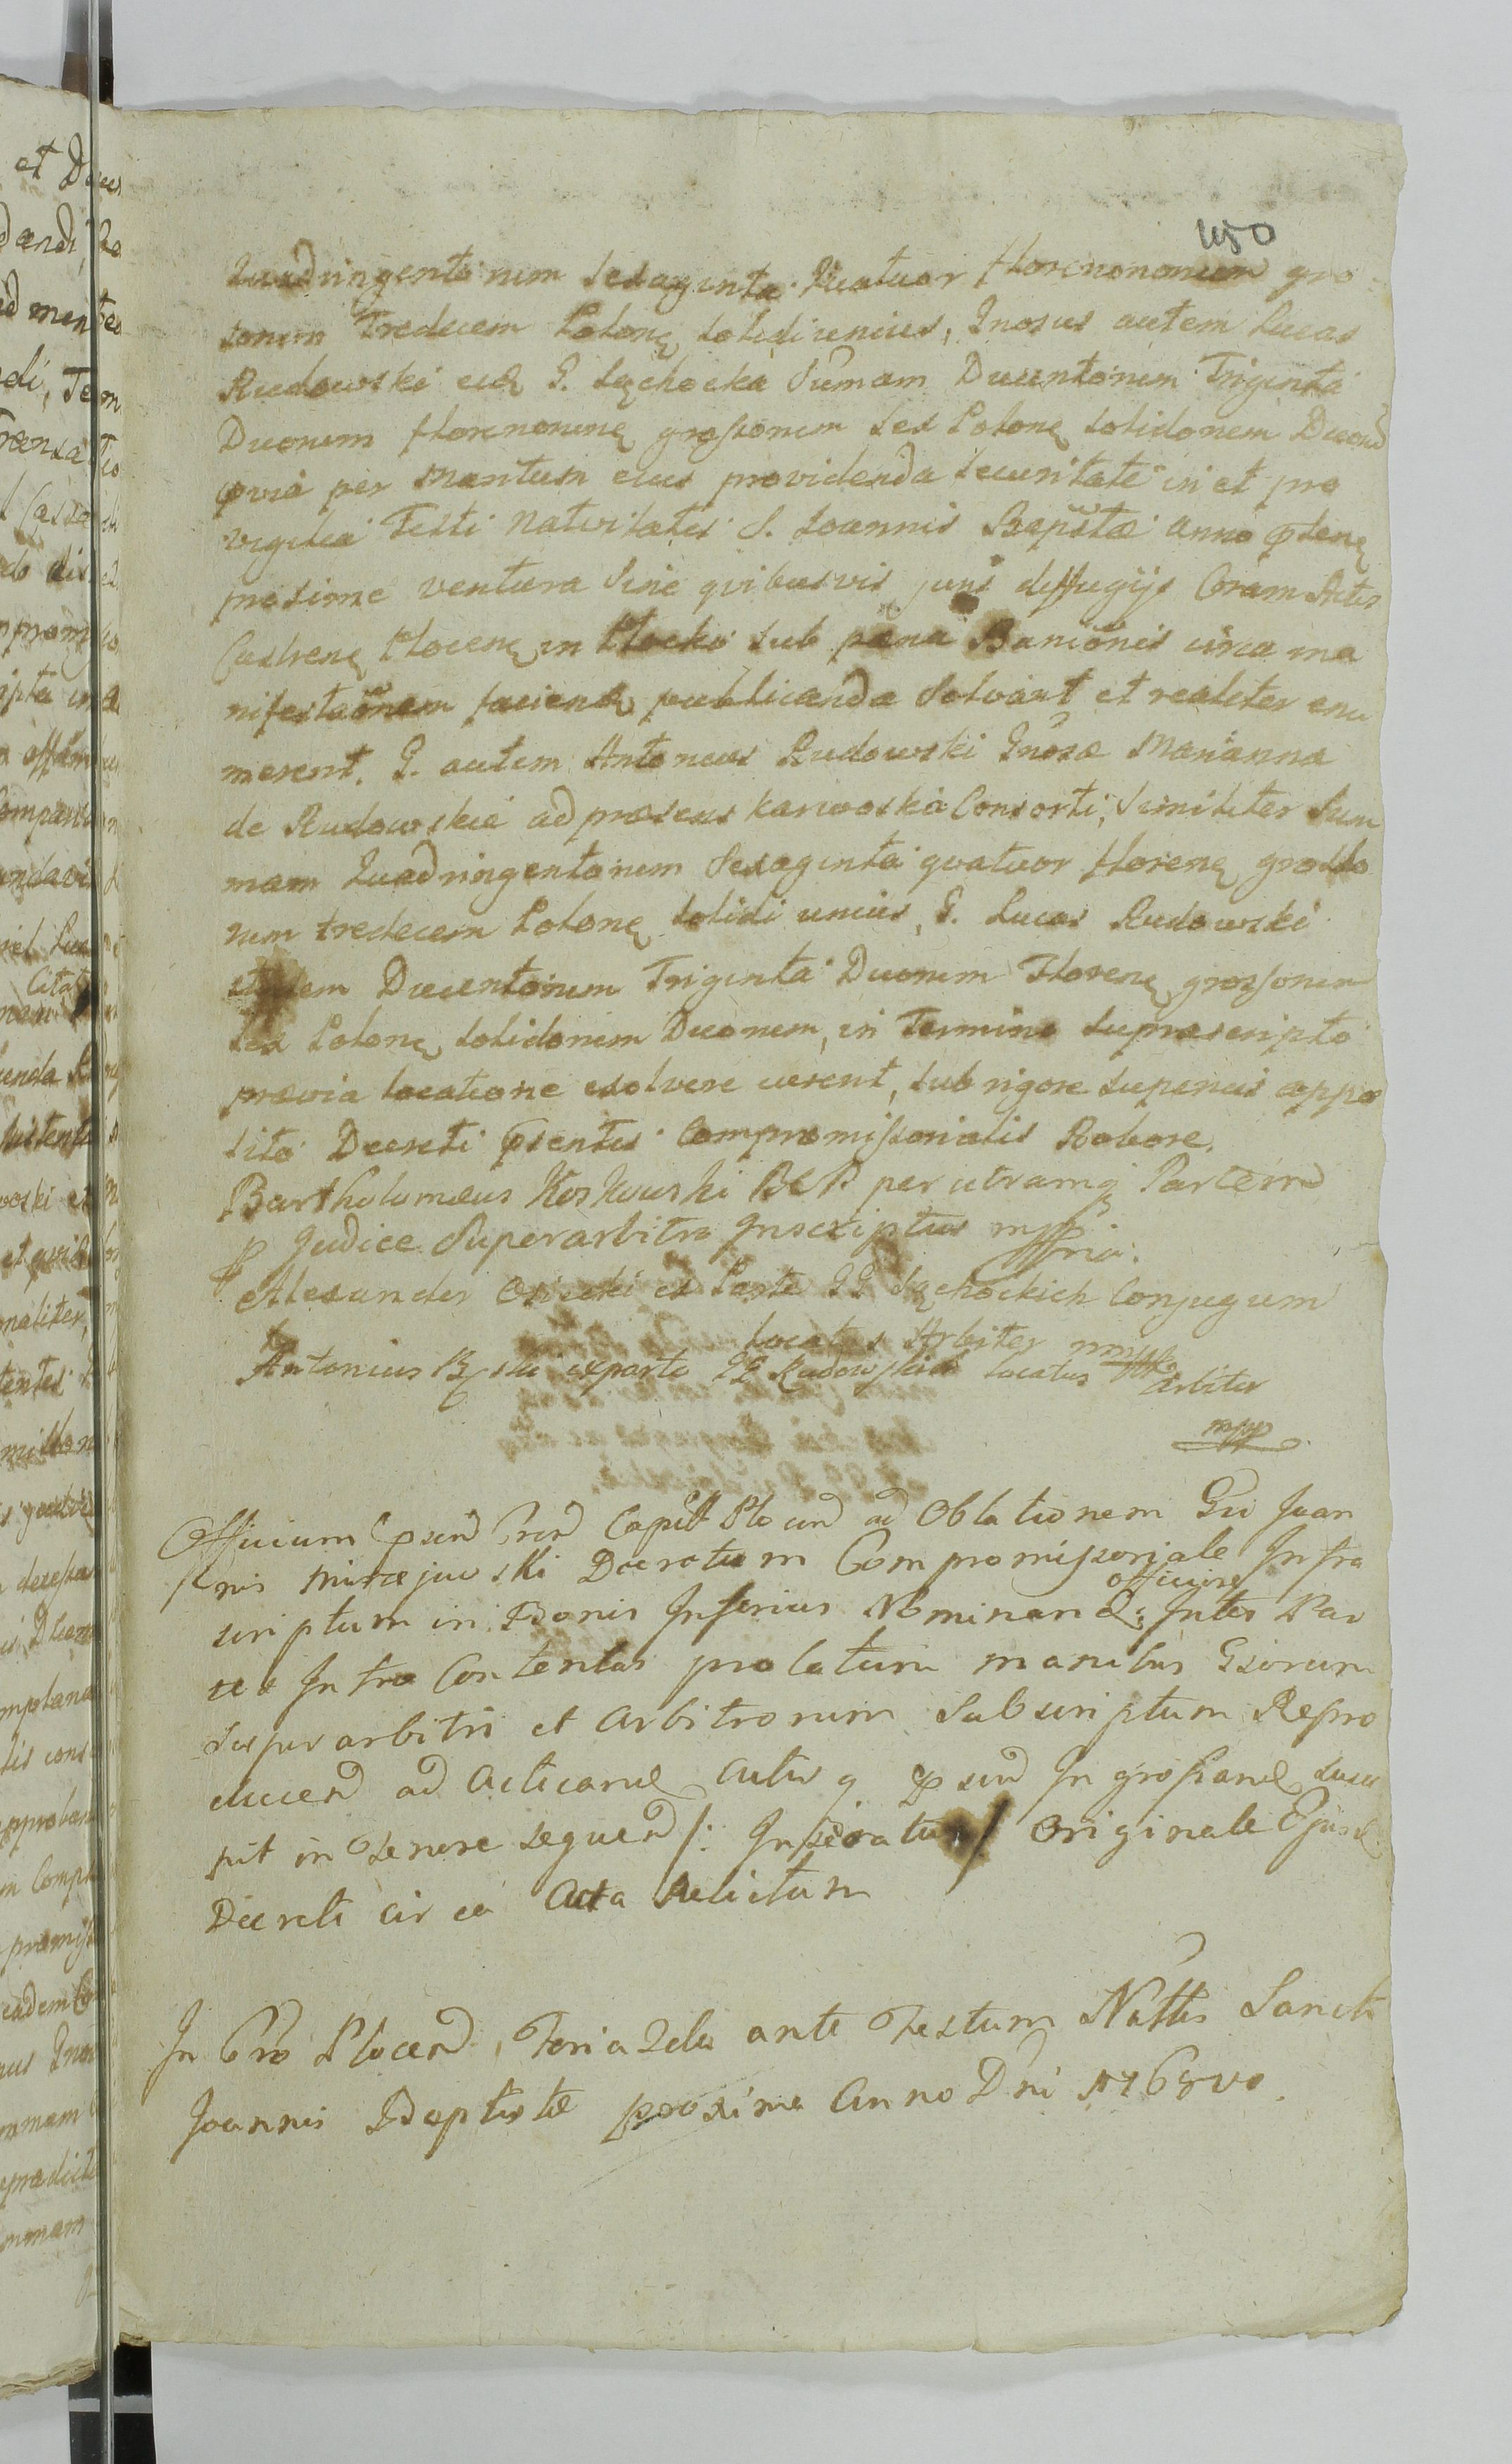 450
Quadringentorum Sexaginta Quatuor florenononum gro
sorum Tredecim Polonę solidi unius, Gnosus autem Lucas
Rudowski eid G. Sęchocka Sumam Ducentorum Triginta
Duorum florenorumę grossorum Sex Polonę Solidorum Duoru
pvia per Mantum ejus providenda Securitate in et pro
vigilia Festi Nativitatis S. Joannis Baptæ anno pstenę
proxime ventura Sine qvibusvis juris diffugijs Coram Actis
Castrenę Plocenę in Plocko sub pæna Banionis circa ma
nifestaonem faciend publicanda Solvant et realiter enu
merent. G. autem Antonius Rudowski Gnosæ Marianna
de Rudowskie ad præsens Karwoska Consorti, Similiter Sum
mam Quadringentorum Sexaginta qvatuor florenę grosso
rum tredecem Polonę solidi unius, G. Lucas Rudowski
itidem Ducentorum Triginta Duorum Florenę grossorum
Sex Polonę Solidorum Duorum, in Termino Suprascripto
prævia locatione exolvere curent, sub rigore Superius appo
sito Decreti psentis Compromissorialis Robore.
Bartholomæus Koskowski BCP per utramq Partem
p Judice Superarbitro Inscriptus mppria.
Alexander Osiecki ex Parte GG Sęchockich Conjugum
locatus Arbiter mppa
Antonius exparte GG Rudowskich locatus arbiter
mpp
Officium psend Cred Capitl Plocend ad Oblationem Gsi Joan
nis Mirzejewski Decretum Compromissoriale Infra
scriptum in Bonis Inferius Nominand officiose Inter Par
tes Intra Contentas prolatum manibus Gsorum
Superarbitri et Arbitrorum Subscriptum Repro
ducend ad Acticand Actis q psend Ingrossand susce
pit in Tenore seqvend /: Inseratur / Originale Ejusd
Decreti circa Acta Relictum
In Cro Plocend, Feria 2da ante Festum Nattis Sancti
Joannis Baptistæ proxima Anno Dni 1768vo.